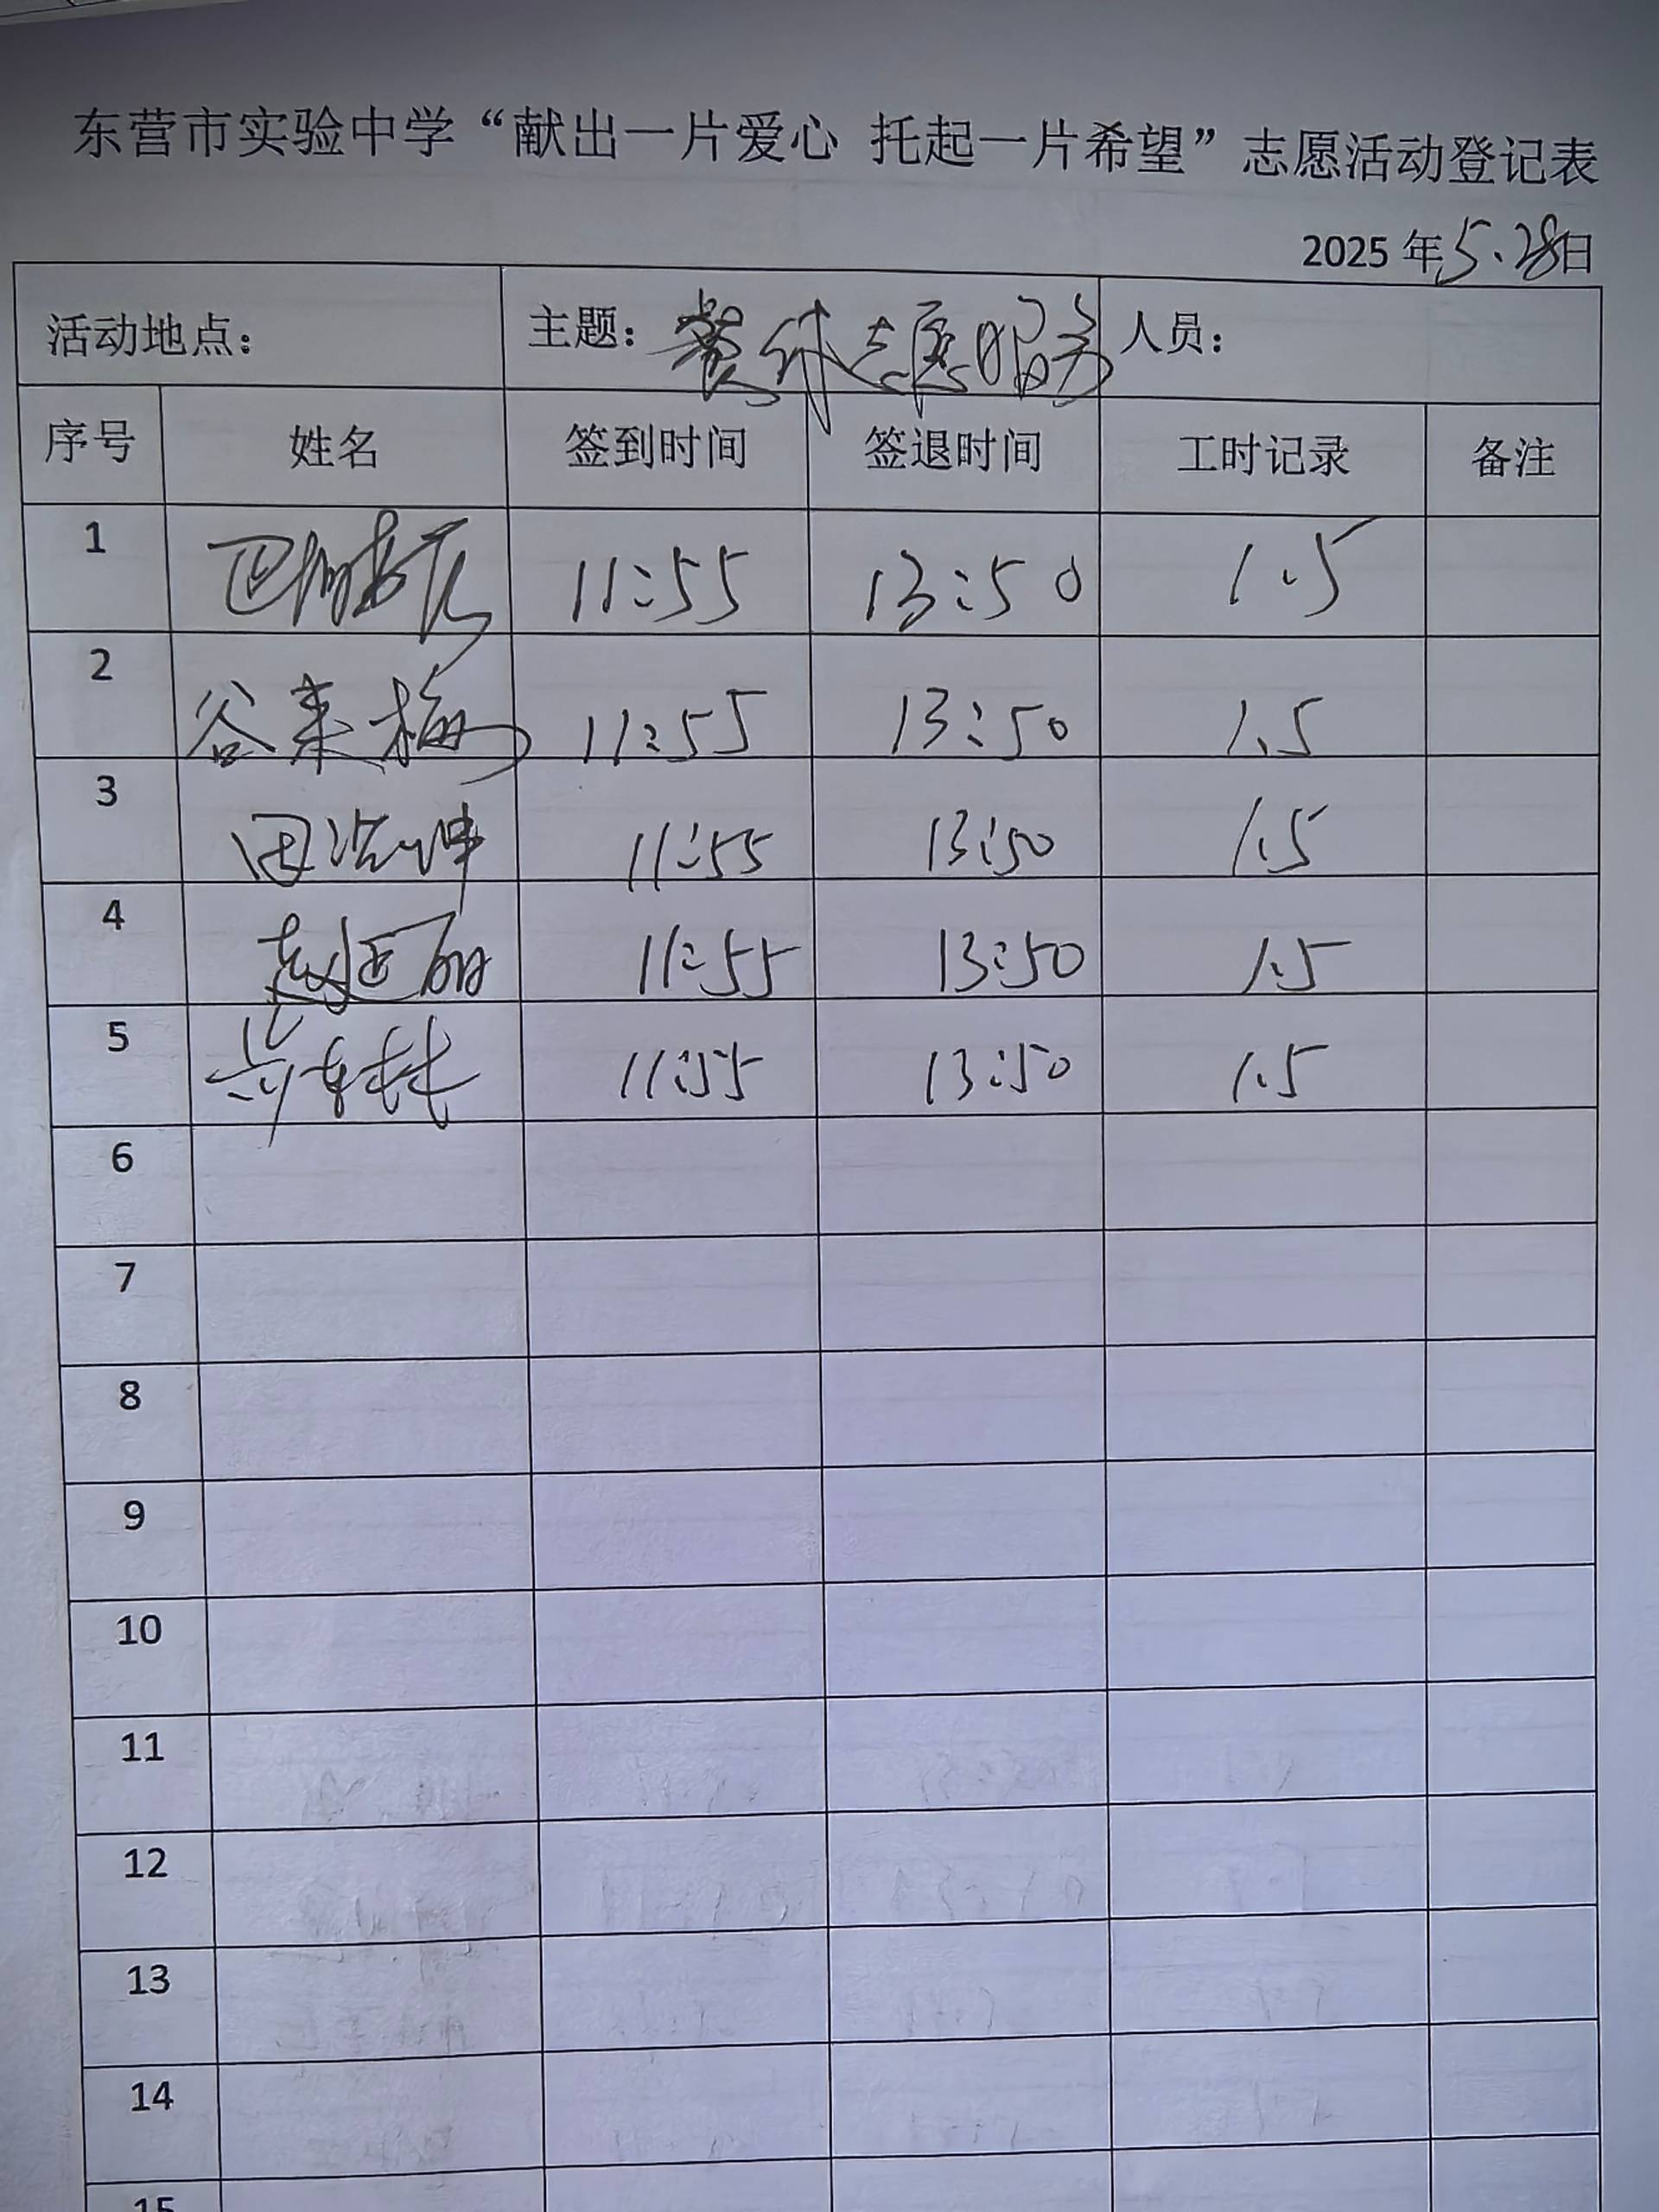 东营市实验中学“献出一片爱心 托起一片希望”志愿活动登记表
2025年5.28日
活动地点: 主题: 餐休志愿服务 人员:
序号 姓名 签到时间 签退时间 工时记录 备注
1 11:55 13:50 1.5
2 谷来梅 11:55 13:50 1.5
3 田浩坤 11:55 13:50 1.5
4 赵延丽 11:55 13:50 1.5
5 11:55 13:50 1.5
6
7
8
9
10
11
12
13
14
15